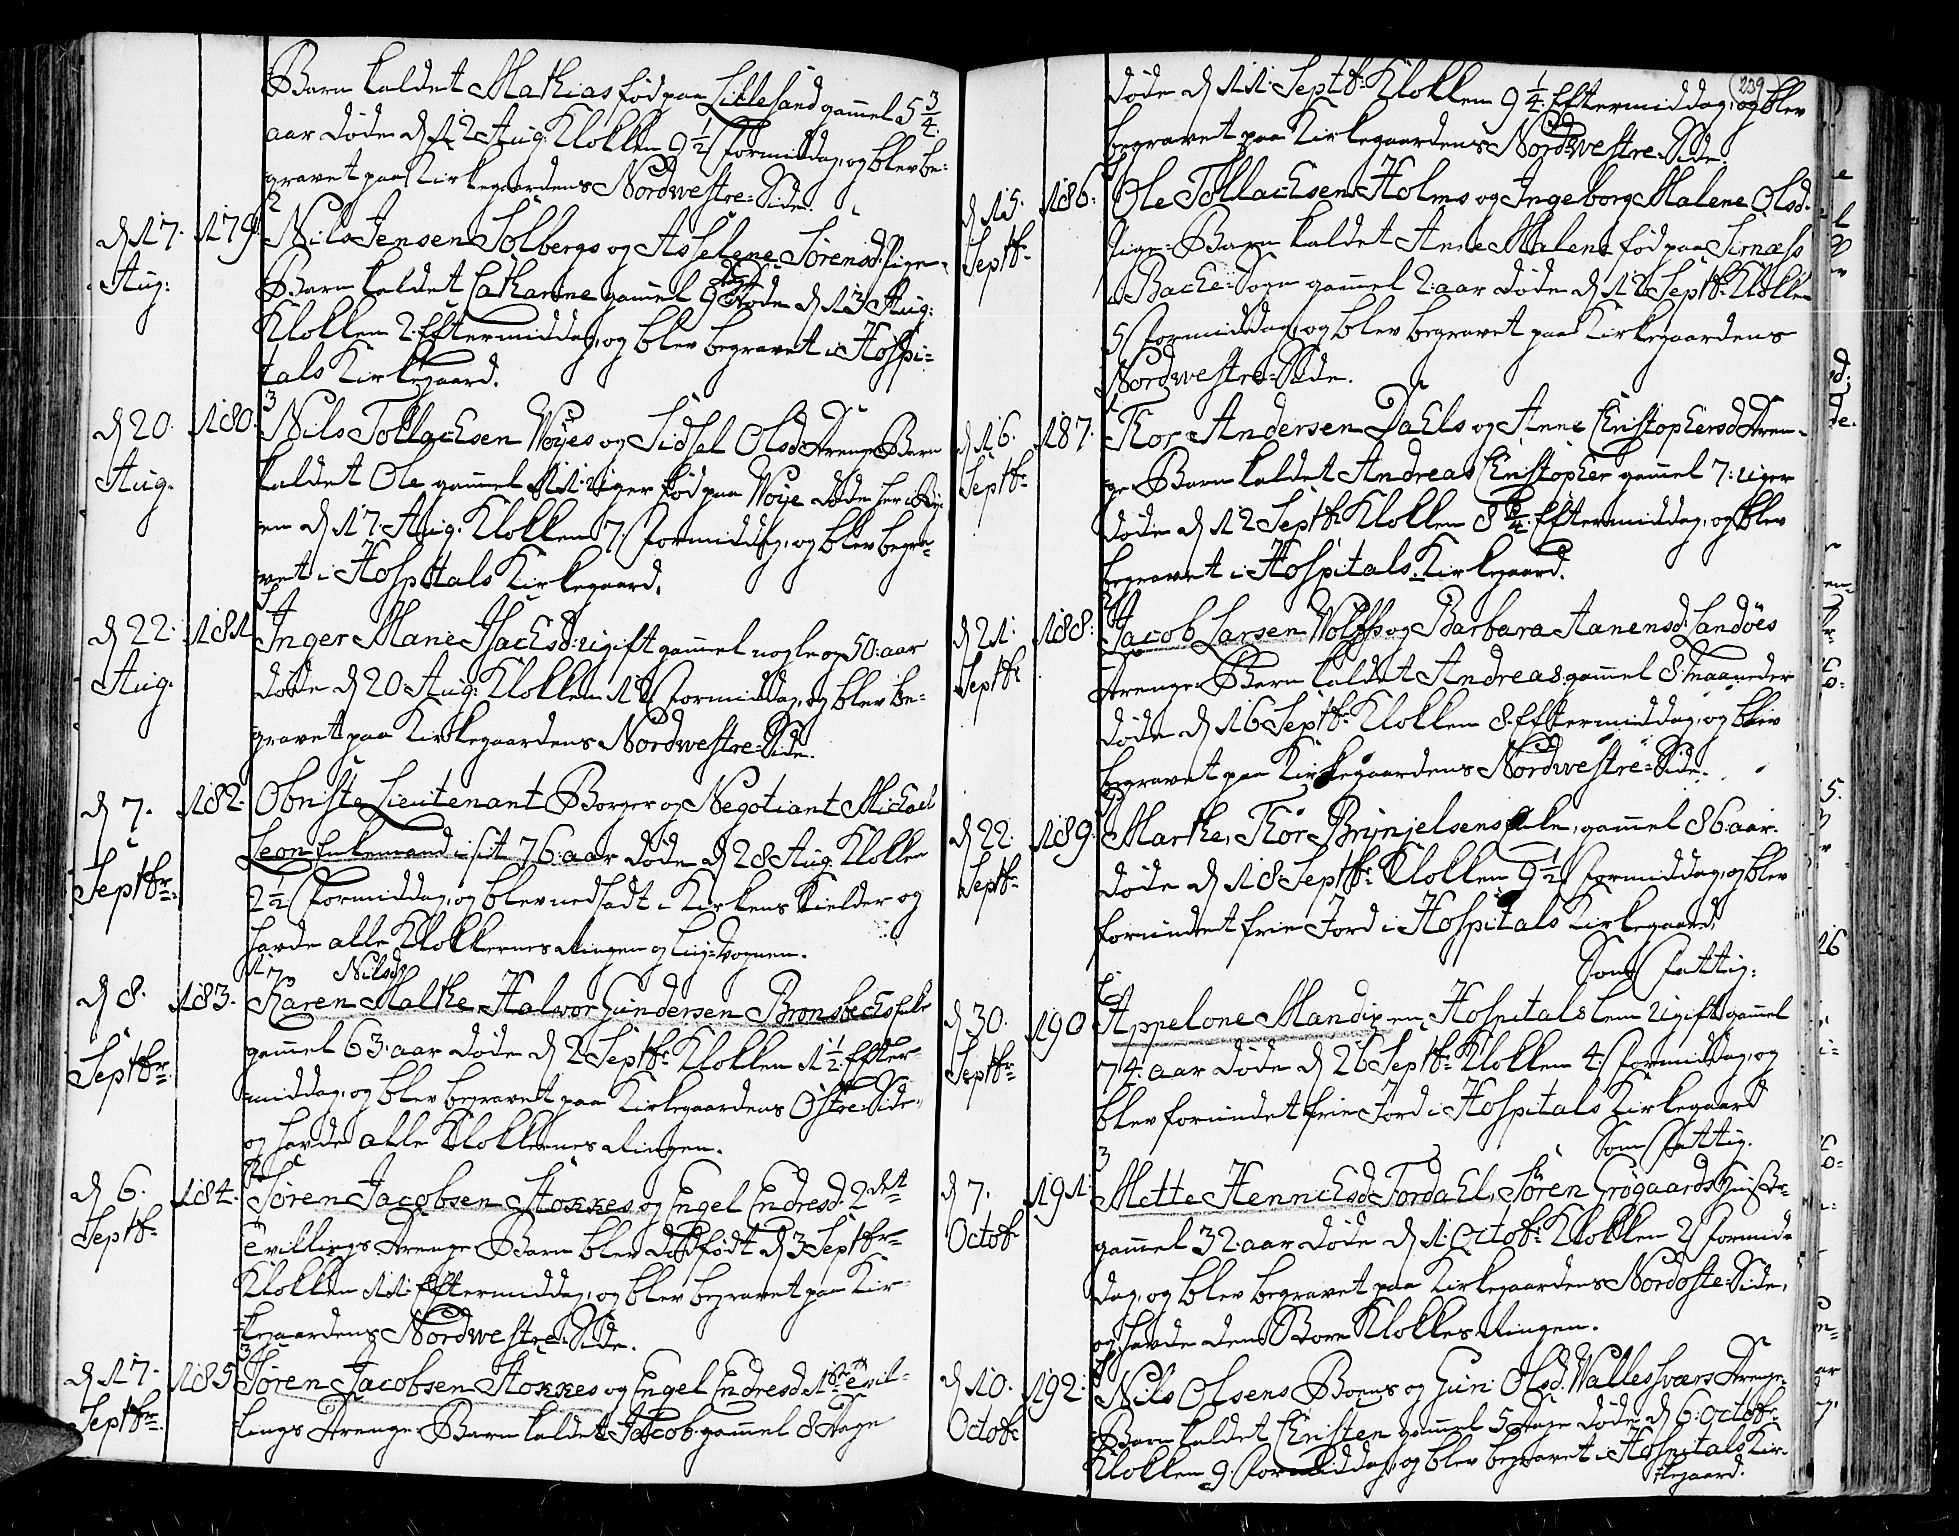 Barn kaldet Mathias fød paa Lillesand gammel 5 3/4
aar døde d 12 Aug: Klokken 9 1/2 Formiddag, og blev be-
gravet paa Kirkegaardens Nordwestre-Side.
2
d 17. Aug: 179. Nils Jensen Solbergs og Asselene Sørensd: Pige-
Barn kaldet Catharine gammel 9 døde d 13 Aug:
Klokken 2. Eftermiddag, og blev begravet i Hospi-
tals Kirkegaard.
3
d 20. Aug. 180. Nils Tollachsen Woyes og Sidsel Olsd: Drenge Barn
kaldet Ole gammel 11 uger fød paa Woye døde her i By-
en d 17 Aug. Klokken 7. Formiddag, og blev begra-
vet i Hospitals Kirkegaard.
d 22. Aug. 181 Inger Marie Isachsd: ugift gammel nogle og 50: aar
døde d 20 Aug: Klokken Formiddag, og blev be-
gravet paa Kirkegaardens Nordwestre-Side.
d 7. Septbr. 182. Obriste Lieutenant Borger og Negotiant Michael
Leon Enkemand i sit 76: aar døde d 28 Aug. Klokken
2 1/2 Formiddag, og blev nedsadt i Kirkens Kielder og
havde alle Klokkernes Ringen og Liig-Vognen.
17 Nilsd:
d 8. Septbr. 183. Karen Malthe Halvor Gundersen Bronsbechs Enke
gammel 63: aar døde d 2 Septbr: Klokken 1 1/2 Efter-
middag, og blev begravet paa Kirkegaardens Østre-Side
og havde alle Klokkernes Ringen.
d 6. Septbr 184. Søren Jacobsen Stokkes og Engel Endresd: 2
Tvillings Drenge Barn blev dødfødt d 3 Septbr
Klokken 11: Eftermiddag, og blev begravet paa Kir-
kegaardens Nordwestre-Side.
3
d 17. Septbr. 185 Søren Jacobsen Stokkes og Engel Endresd: Tvil-
lings Drenge-Barn kaldet Jacob gammel 8 Dage
239
døde d 11. Septbr: Klokken 9 1/4 Eftermiddag, og blev
begravet paa Kirkegaardens Nordwestre-Side.
d 15. Septbr 186. Ole Tollachsen Holms og Ingeborg Malene Olsd.
Pige-Barn kaldet Anne Malene fød paa Sirnæss
i Backe-Sogn gammel 2: aar døde d 12 Septbr: Klokken
5 Formiddag, og blev begravet paa Kirkegaardens
Nordwestre-Side.
d 16. Septbr 187. Thor Andersen Dahls og Anne Christophersd Dren-
ge-Barn kaldet Andreas Christopher gammel 7: uger
døde d 12 Septbr: Klokken 8 Eftermiddag, og blev
begravet i Hospitals-Kirkegaard.
d 21. Septbr 188. Jacob Larsen Wolffs og Barbara Aanensd: Sandøes
Drenge-Barn kaldet Andreas gammel 8 Maaneder
døde d 16 Septbr: Klokken 8. Eftermiddag, og blev
begravet paa Kirkegaardens Nordwestre-Side.
d 22. Septbr 189. Marthe, Thor Brynjelsens Enke, gammel 86: aar.
døde d 18 Septbr: Klokken 9 1/2 Formiddag, og blev
forundt frie Jord i Hospitals Kirkegaard,
Som Fattig:
d 30. Septbr 190 Appelone Mandix en Hospitals Lem ugift gammel
74: aar døde d 26 Septbr: Klokken 4 Formiddag, og
blev forundet frie Jord i Hospitals Kirkegaard
Som Fattig.
3
d 7. Octobr 191. Mette Hennichsd Tordahl, Søren Grøgaards
gammel 32: aar døde d 1. Octobr: Klokken 2 Formid-
dag, og blev begravet paa Kirkegaardens Nordoste-Side,
og havde den Store Klokkes Ringen.
d 10. Octobr 192. Nils Olsens Boens og Guri Olsd. Wallessværs Drenge
Barn kaldet Christen gammel 5 Dage døde d 6. Octobr.
Klokken 9. Formiddag, og blev begravet i Hospitals Kir-
kegaard.